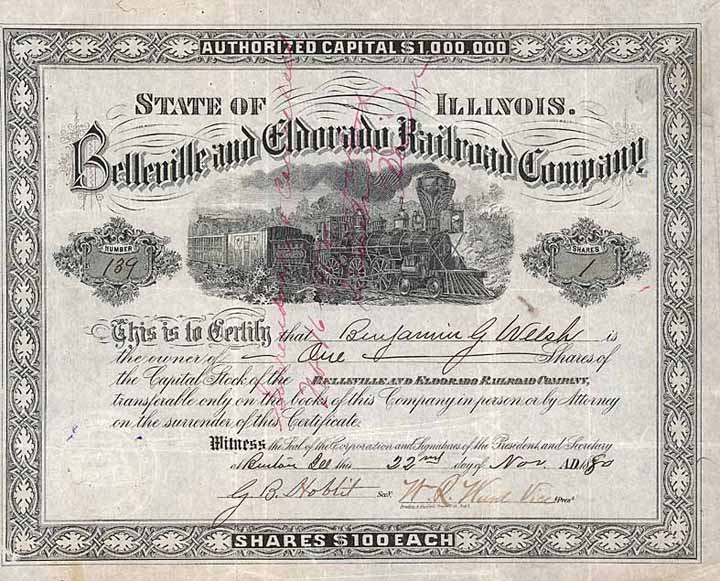 AUTHORIZED CAPITAL $1,000,000
STATE OF ILLINOIS.
Belleville and Eldorado Railroad Company,
NUMBER
139
SHARES
1
This is to Certify that Benjamin G Welsh is
the owner of One Shares of
the Capital Stock of the BELLEVILLE AND ELDORADO RAILROAD COMPANY,
transferable only on the books of this Company in person or by Attorney
on the surrender of this Certificate.
Witness the Seal of the Corporation and Signatures of the President and Secretary
at Benton Ill this 22nd day of Nov AD 1880
G B Hoblit Secy. W R Vice Prest
SHARES $100 EACH